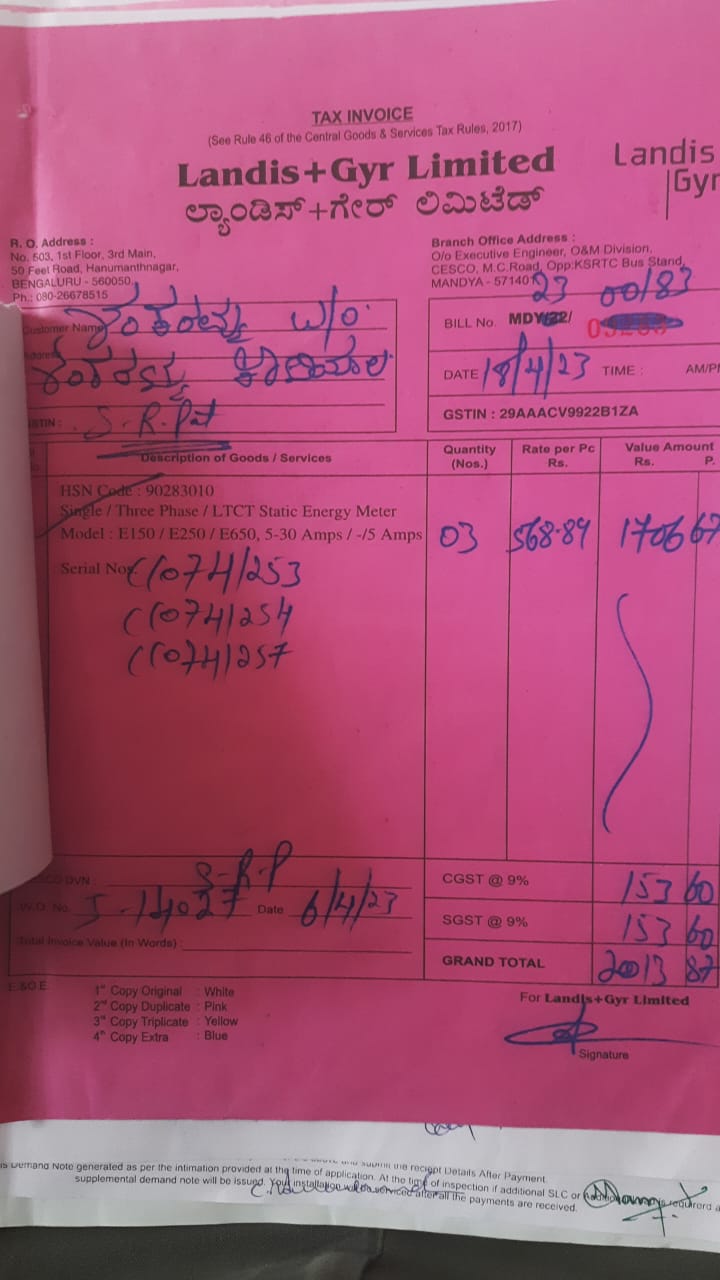 TAX INVOICE
(See Rule 46 of the Central Goods & Services Tax Rules, 2017)
Landis+Gyr Limited
ಲ್ಯಾಂಡಿಸ್+ಗೇರ್ ಲಿಮಿಟೆಡ್
Landis
Gyr
R. O. Address :
No. 503, 1st Floor, 3rd Main,
50 Feet Road, Hanumanthnagar,
BENGALURU - 560050.
Ph.: 080-26678515
Branch Office Address :
O/o Executive Engineer, O&M Division,
CESCO, M.C.Road, Opp:KSRTC Bus Stand,
MANDYA - 571401
Customer Name W/o
S-R-Pat
BILL No. MDY/22/ 23 00/83
DATE 18/4/23 TIME : AM/PM
GSTIN : 29AAACV9922B1ZA
Description of Goods / Services Quantity (Nos.) Rate per Pc Rs. Value Amount Rs. P.
HSN Code : 90283010
Single / Three Phase / LTCT Static Energy Meter
Model : E150 / E250 / E650, 5-30 Amps / -/5 Amps 03 568.89 1706 67
Serial Nos.
DVN : S-R-P
W.O. No. J-14027 Date 6/4/23
Total Invoice Value (In Words) :
CGST @ 9% 153 60
SGST @ 9% 153 60
GRAND TOTAL 2013 87
E.&O.E.
1st Copy Original : White
2nd Copy Duplicate : Pink
3rd Copy Triplicate : Yellow
4th Copy Extra : Blue
For Landis+Gyr Limited
Signature
submit the reciept Details After Payment.
is Demand Note generated as per the intimation provided at the time of application. At the time of inspection if additional SLC or
supplemental demand note will be issued. Your installation after all the payments are received.